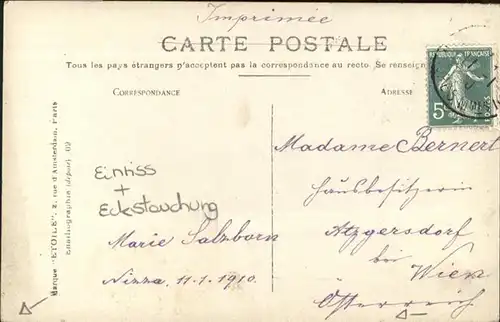 Imprimée
CARTE POSTALE
Tous les pays étrangers n'acceptent pas la correspondance au recto. Se renseign
CORRESPONDANCE
ADRESSE
REPUBLIQUE FRANÇAISE
5
Marque "ETOILE", 2, rue d'Amsterdam, Paris
Madame Bernert
Hausbesitzerin
Atzgersdorf
bei Wien
Österreich
Einriss
+
Eckstauchung
Marie Salzborn
Nizza 11.1.1910.